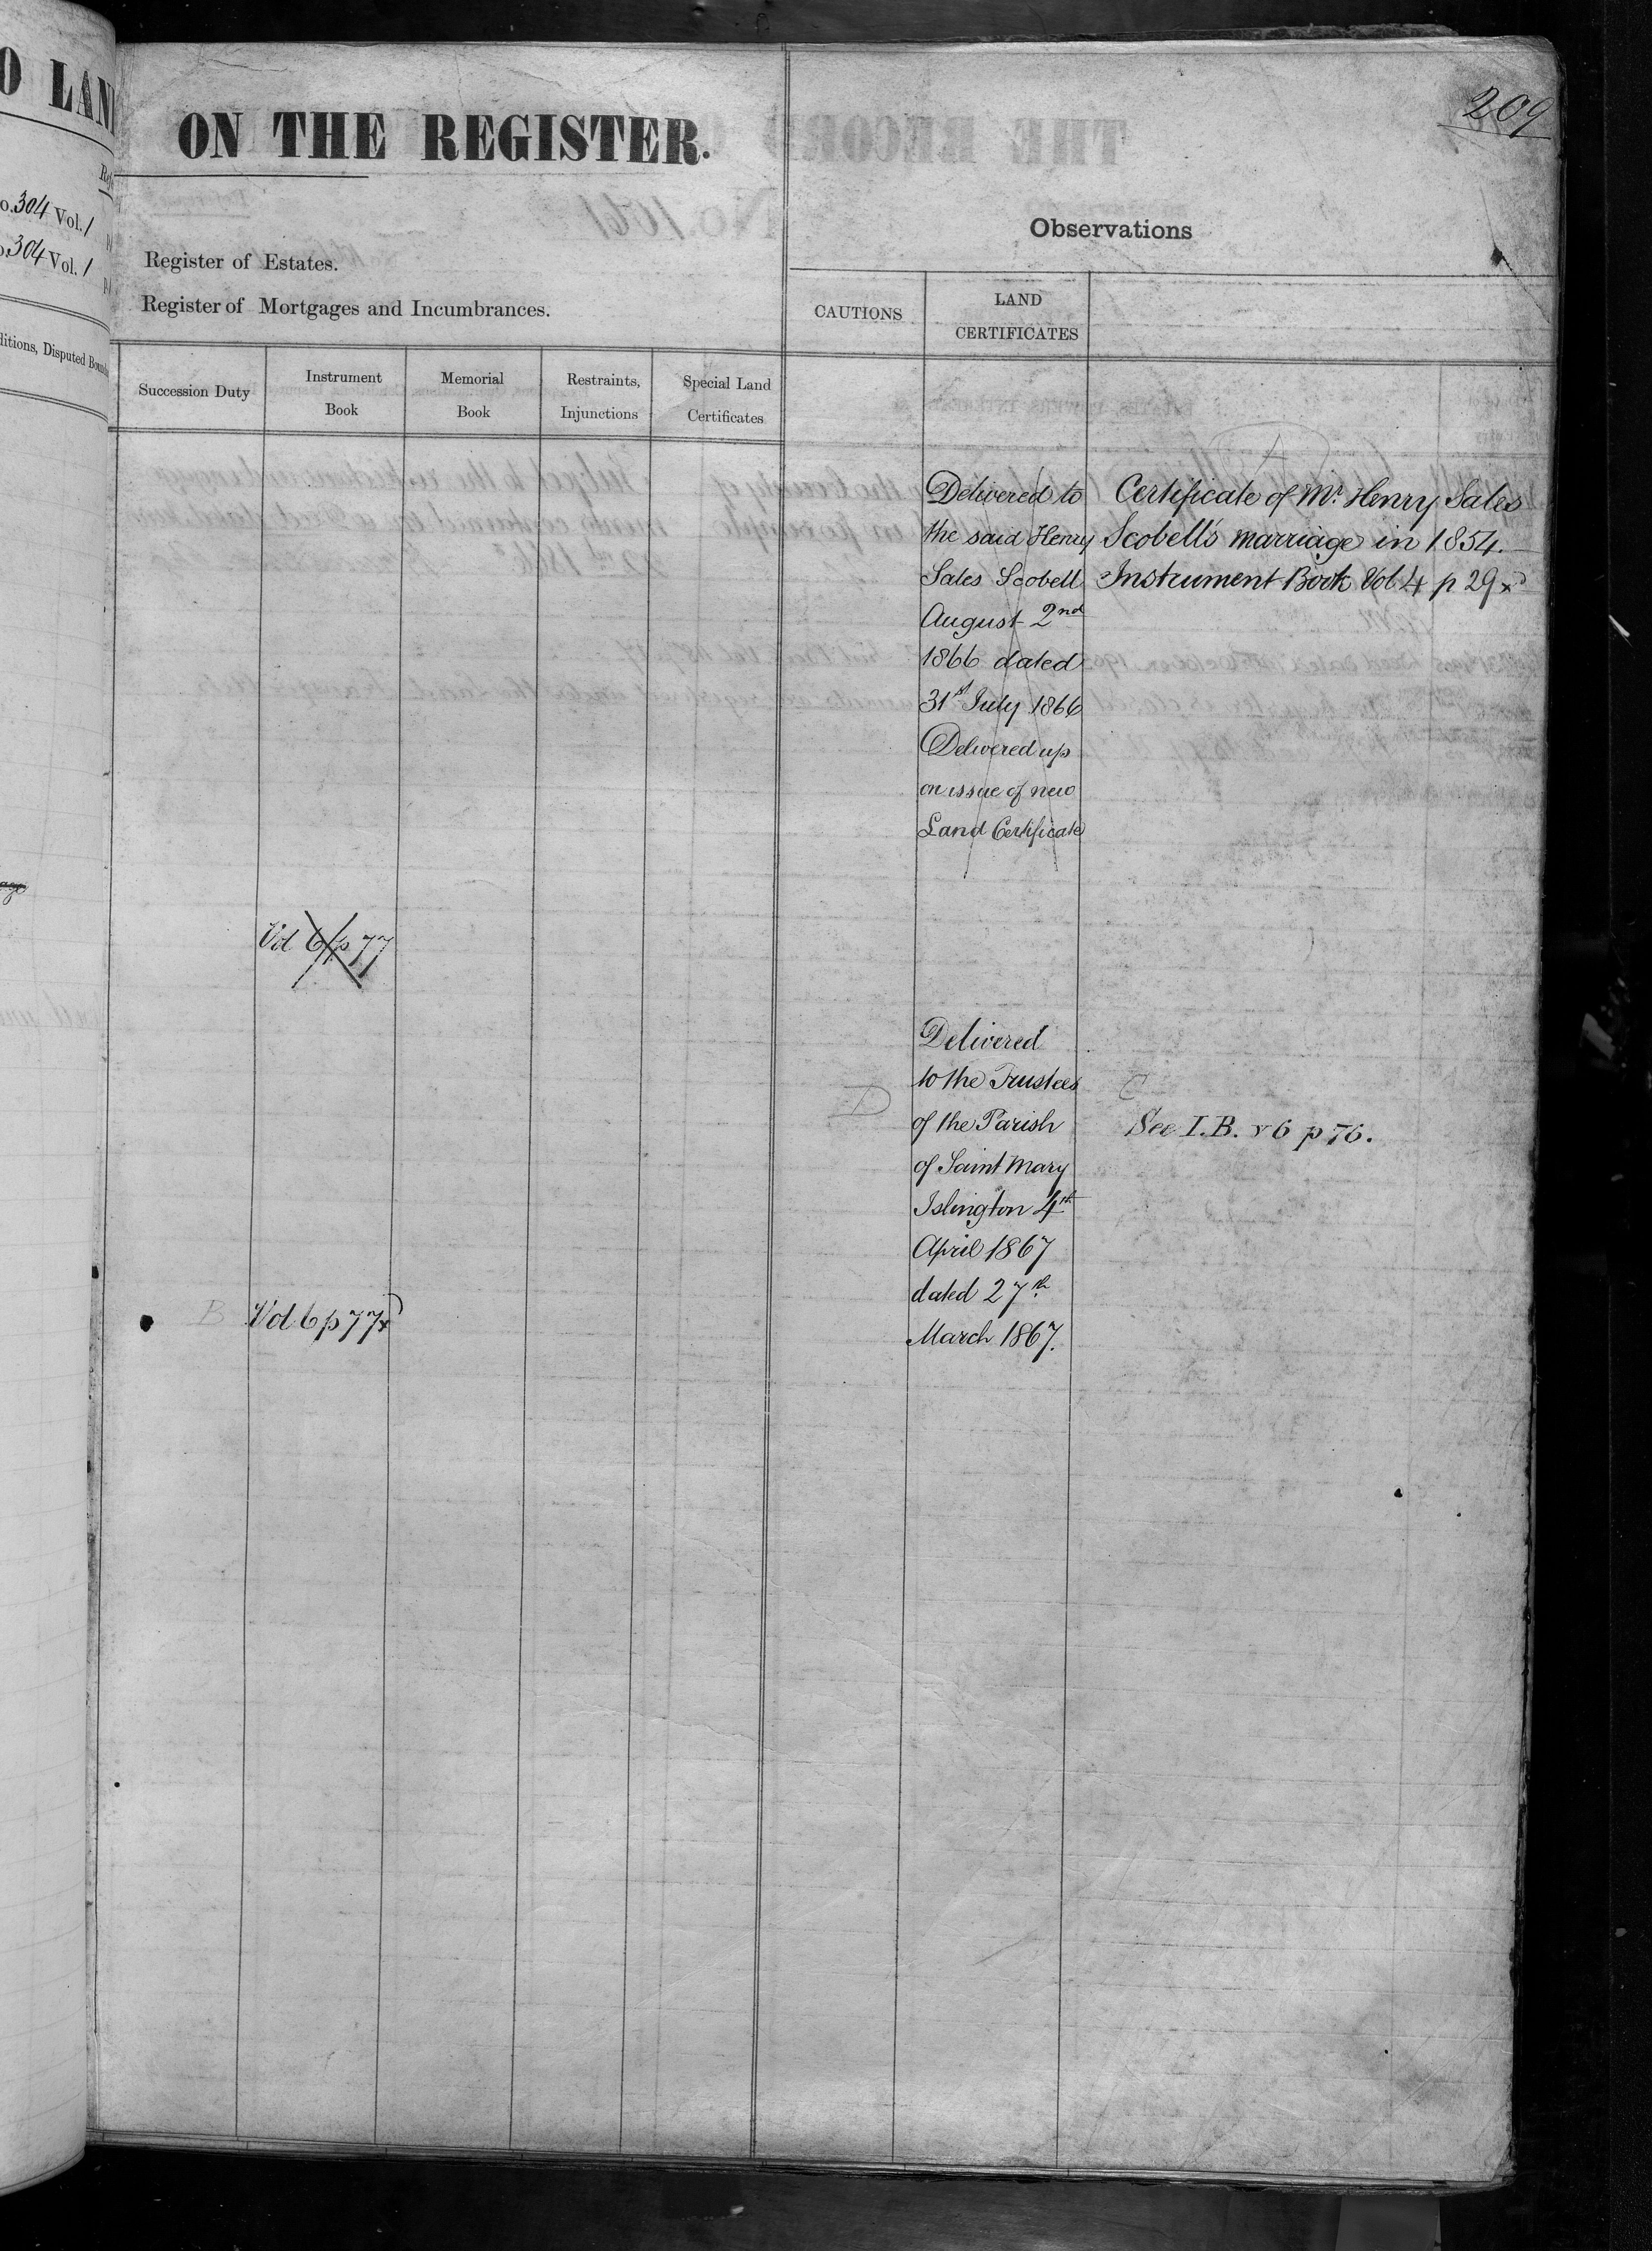 O LAN
o. 304 Vol. 1
o. 304 Vol. 1
ditions, Disputed Bound
209
ON THE REGISTER.
Register of Estates.
Register of Mortgages and Incumbrances.
Observations
CAUTIONS
LAND
CERTIFICATES
Succession Duty
Instrument
Book
Memorial
Book
Restraints,
Injunctions
Special Land
Certificates
Vol 6 p 77
B Vol 6 p 77 x
Delivered to
the said Henry
Sales Scobell
August 2nd
1866 dated
31st July 1866
Delivered up
on issue of new
Land Certificate
D
Delivered
to the Trustees
of the Parish
of Saint Mary
Islington 4th
April 1867
dated 27th
March 1867.
A
Certificate of Mr. Henry Sales
Scobell's marriage in 1854.
Instrument Book Vol 4 p 29 x
C
See I.B. v 6 p 76.